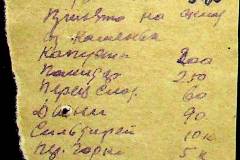 Принято на склад
от
Капуста 200
Помидор 250
Перец слад. 60
Дыни 90
Сельдерей 10 к
5 к